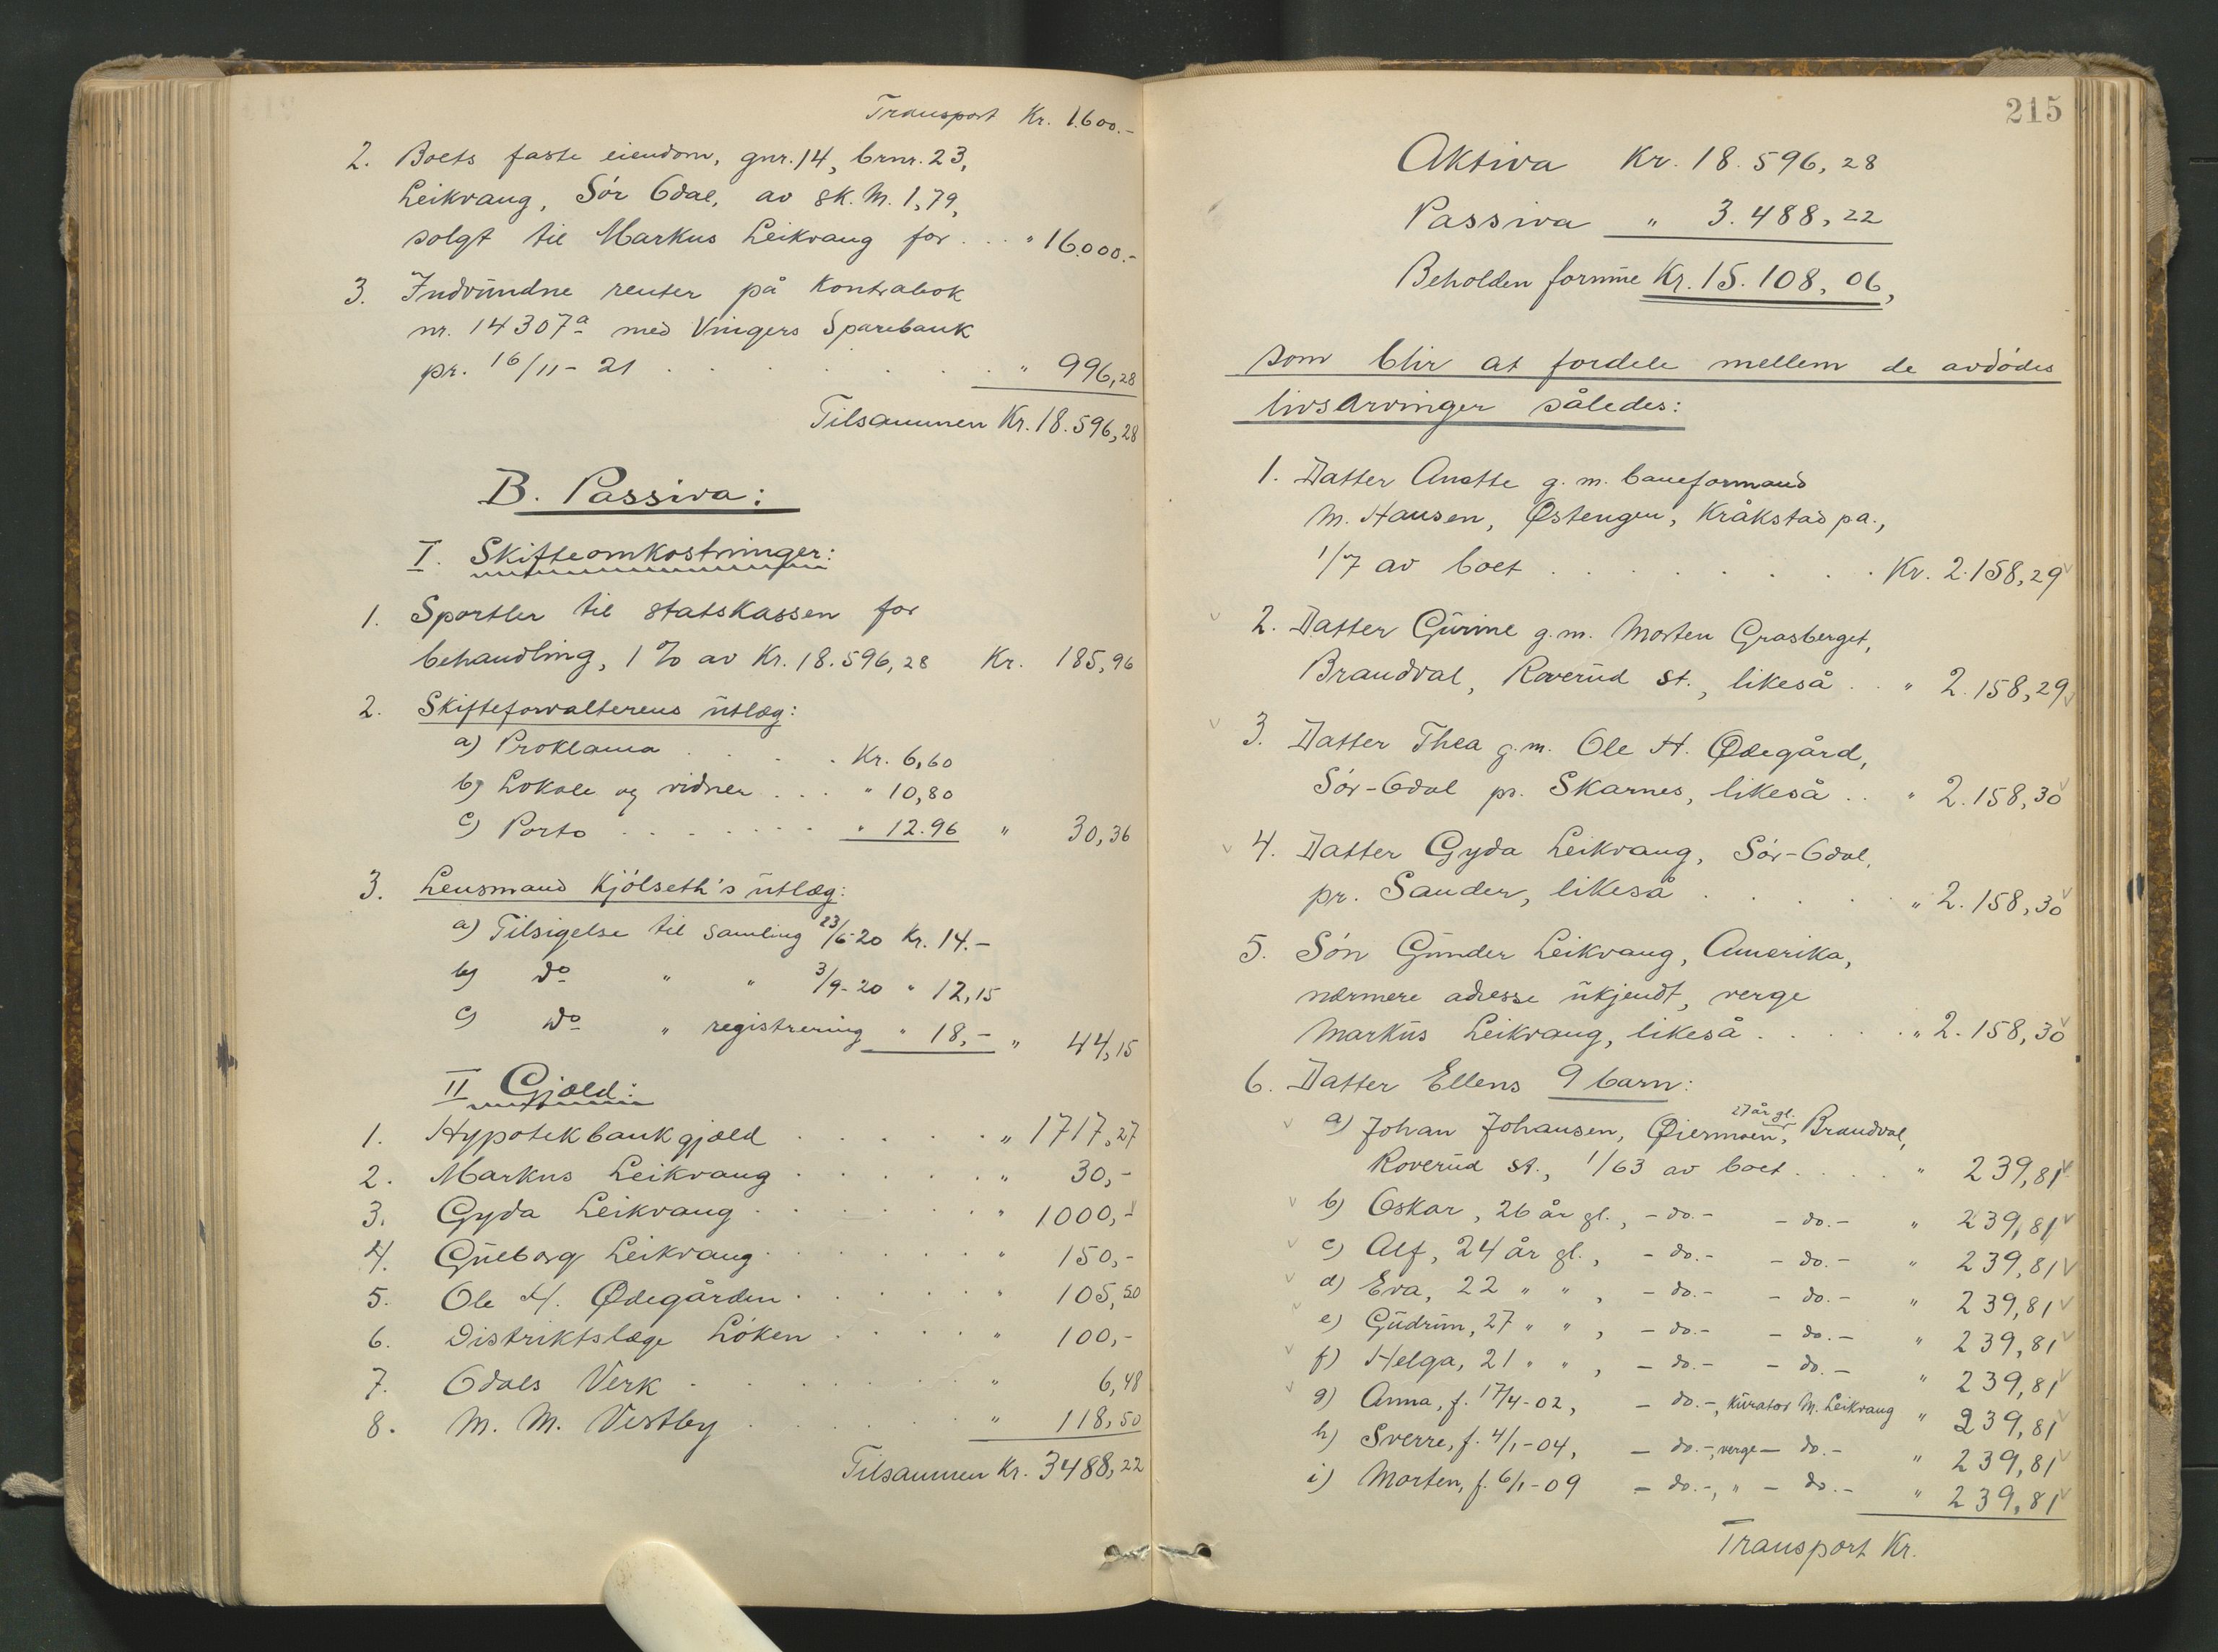 Transport Kr. 1.600.-
2. Boets faste eiendom, gnr. 14, brnr. 23,
Leikvang, Sör Odal, av sk. M. 1,79,
solgt til Markus Leikvang for . . . " 16.000.-
3. Indvundne renter på Kontrabok
nr. 14307a med Vingers Sparebank
pr. 16/11-21 . . . . . . . " 996,28
Tilsammen Kr. 18.596,28
B. Passiva:
I. Skifteomkostninger:
1. Sportler til statskassen for
behandling, 1 % av Kr. 18.596,28 Kr. 185,96
2. Skifteforvalterens utlæg:
a) Proklama . . . . Kr. 6,60
b) Lokale og vidner . . . " 10,80
c) Porto . . . . . . . " 12.96 " 30,36
3. Lensmand Kjölseth's utlæg:
a) Tilsigelse til samling 23/6-20 Kr. 14.-
b) do " " 3/9-20 " 12,15
c) do " registrering " 18,- " 44,15
II Gjæld:
1. Hypotekbankgjæld . . . . . " 1717,27
2. Markus Leikvang . . . . . " 30,-
3. Gyda Leikvang . . . . . . " 1000,-
4. Gulborg Leikvang . . . . . . " 150,-
5. Ole H. Ödegården . . . . . " 105,50
6. Distriktslæge Löken . . . . " 100,-
7. Odals Verk . . . . . . . " 6,48
8. M. M. Vestby . . . . . . " 118,50
Tilsammen Kr. 3488,22
215
Aktiva Kr. 18.596,28
Passiva " 3.488,22
Beholden formue Kr. 15.108,06,
som blir at fordele mellem de avdödes
livsarvinger således:
1. Datter Anette g. m. baneformand
M. Hansen, Østengen, Kråkstad pa.,
1/7 av boet . . . . . . . Kr. 2.158,29
2. Datter Gurine g. m. Morten Grasberget,
Brandval, Roverud st., likeså . . " 2.158,29
3. Datter Thea g. m. Ole H. Ødegård,
Sör-Odal pr. Skarnes, likeså . . " 2.158,30
4. Datter Gyda Leikvang, Sör-Odal,
pr. Sander, likeså . . . . . " 2.158,30
5. Sön Gunder Leikvang, Amerika,
nærmere adresse ukjendt, verge
Markus Leikvang, likeså . . . . . " 2.158,30
6. Datter Ellens 9 barn:
27 år gl.
a) Johan Johansen, Øiermoen, Brandval,
Roverud st., 1/63 av boet . . . " 239,81
b) Oskar, 26 år gl., - do. - - do. - " 239,81
c) Alf, 24 år gl., - do. - - do. - " 239,81
d) Eva, 22 " " , - do. - - do. - " 239,81
e) Gudrun, 27 " " , - do. - - do. - " 239,81
f) Helga, 21 " " , - do. - - do. - " 239,81
g) Anna, f. 17/4-02, - do. -, Kurator M. Leikvang " 239,81
h) Sverre, f. 4/1-04, - do. -, verge - do. - " 239,81
i) Morten, f. 6/1-09 - do. -, " - do. - " 239,81
Transport Kr.